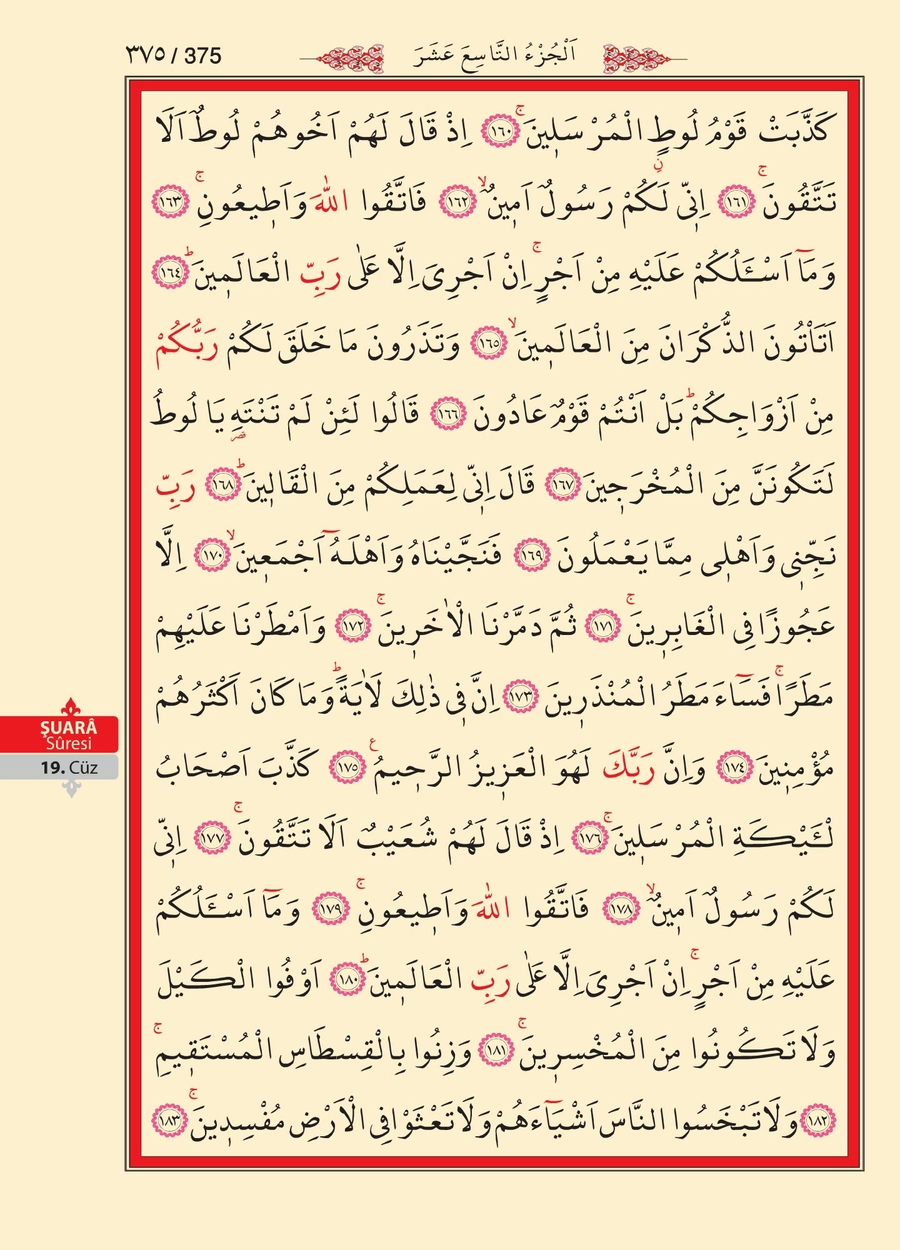 ٣٧٥ / 375
اَلْجُزْءُ التَّاسِعَ عَشَرَ
كَذَّبَتْ قَوْمُ لُوطٍ الْمُرْسَل۪ينَۚ ﴿١٦٠﴾ اِذْ قَالَ لَهُمْ اَخُوهُمْ لُوطٌ اَلَا
تَتَّقُونَۚ ﴿١٦١﴾ اِنّ۪ي لَكُمْ رَسُولٌ اَم۪ينٌۙ ﴿١٦٢﴾ فَاتَّقُوا اللّٰهَ وَاَط۪يعُونِۚ ﴿١٦٣﴾
وَمَٓا اَسْـَٔلُكُمْ عَلَيْهِ مِنْ اَجْرٍۚ اِنْ اَجْرِيَ اِلَّا عَلٰى رَبِّ الْعَالَم۪ينَۜ ﴿١٦٤﴾
اَتَأْتُونَ الذُّكْرَانَ مِنَ الْعَالَم۪ينَۙ ﴿١٦٥﴾ وَتَذَرُونَ مَا خَلَقَ لَكُمْ رَبُّكُمْ
مِنْ اَزْوَاجِكُمْۜ بَلْ اَنْتُمْ قَوْمٌ عَادُونَ ﴿١٦٦﴾ قَالُوا لَئِنْ لَمْ تَنْتَهِ يَا لُوطُ
لَتَكُونَنَّ مِنَ الْمُخْرَج۪ينَ ﴿١٦٧﴾ قَالَ اِنّ۪ي لِعَمَلِكُمْ مِنَ الْقَال۪ينَۜ ﴿١٦٨﴾ رَبِّ
نَجِّن۪ي وَاَهْل۪ي مِمَّا يَعْمَلُونَ ﴿١٦٩﴾ فَنَجَّيْنَاهُ وَاَهْلَهُٓ اَجْمَع۪ينَۙ ﴿١٧٠﴾ اِلَّا
عَجُوزًا فِي الْغَابِر۪ينَۚ ﴿١٧١﴾ ثُمَّ دَمَّرْنَا الْاٰخَر۪ينَۚ ﴿١٧٢﴾ وَاَمْطَرْنَا عَلَيْهِمْ
مَطَرًاۚ فَسَٓاءَ مَطَرُ الْمُنْذَر۪ينَ ﴿١٧٣﴾ اِنَّ ف۪ي ذٰلِكَ لَاٰيَةًۜ وَمَا كَانَ اَكْثَرُهُمْ
مُؤْمِن۪ينَ ﴿١٧٤﴾ وَاِنَّ رَبَّكَ لَهُوَ الْعَز۪يزُ الرَّح۪يمُ۟ ﴿١٧٥﴾ كَذَّبَ اَصْحَابُ
لْـَٔيْكَةِ الْمُرْسَل۪ينَۚ ﴿١٧٦﴾ اِذْ قَالَ لَهُمْ شُعَيْبٌ اَلَا تَتَّقُونَۚ ﴿١٧٧﴾ اِنّ۪ي
لَكُمْ رَسُولٌ اَم۪ينٌۙ ﴿١٧٨﴾ فَاتَّقُوا اللّٰهَ وَاَط۪يعُونِۚ ﴿١٧٩﴾ وَمَٓا اَسْـَٔلُكُمْ
عَلَيْهِ مِنْ اَجْرٍۚ اِنْ اَجْرِيَ اِلَّا عَلٰى رَبِّ الْعَالَم۪ينَۜ ﴿١٨٠﴾ اَوْفُوا الْكَيْلَ
وَلَا تَكُونُوا مِنَ الْمُخْسِر۪ينَۚ ﴿١٨١﴾ وَزِنُوا بِالْقِسْطَاسِ الْمُسْتَق۪يمِۚ
﴿١٨٢﴾ وَلَا تَبْخَسُوا النَّاسَ اَشْيَٓاءَهُمْ وَلَا تَعْثَوْا فِي الْاَرْضِ مُفْسِد۪ينَۚ ﴿١٨٣﴾
ŞUARÂ
Sûresi
19. Cüz